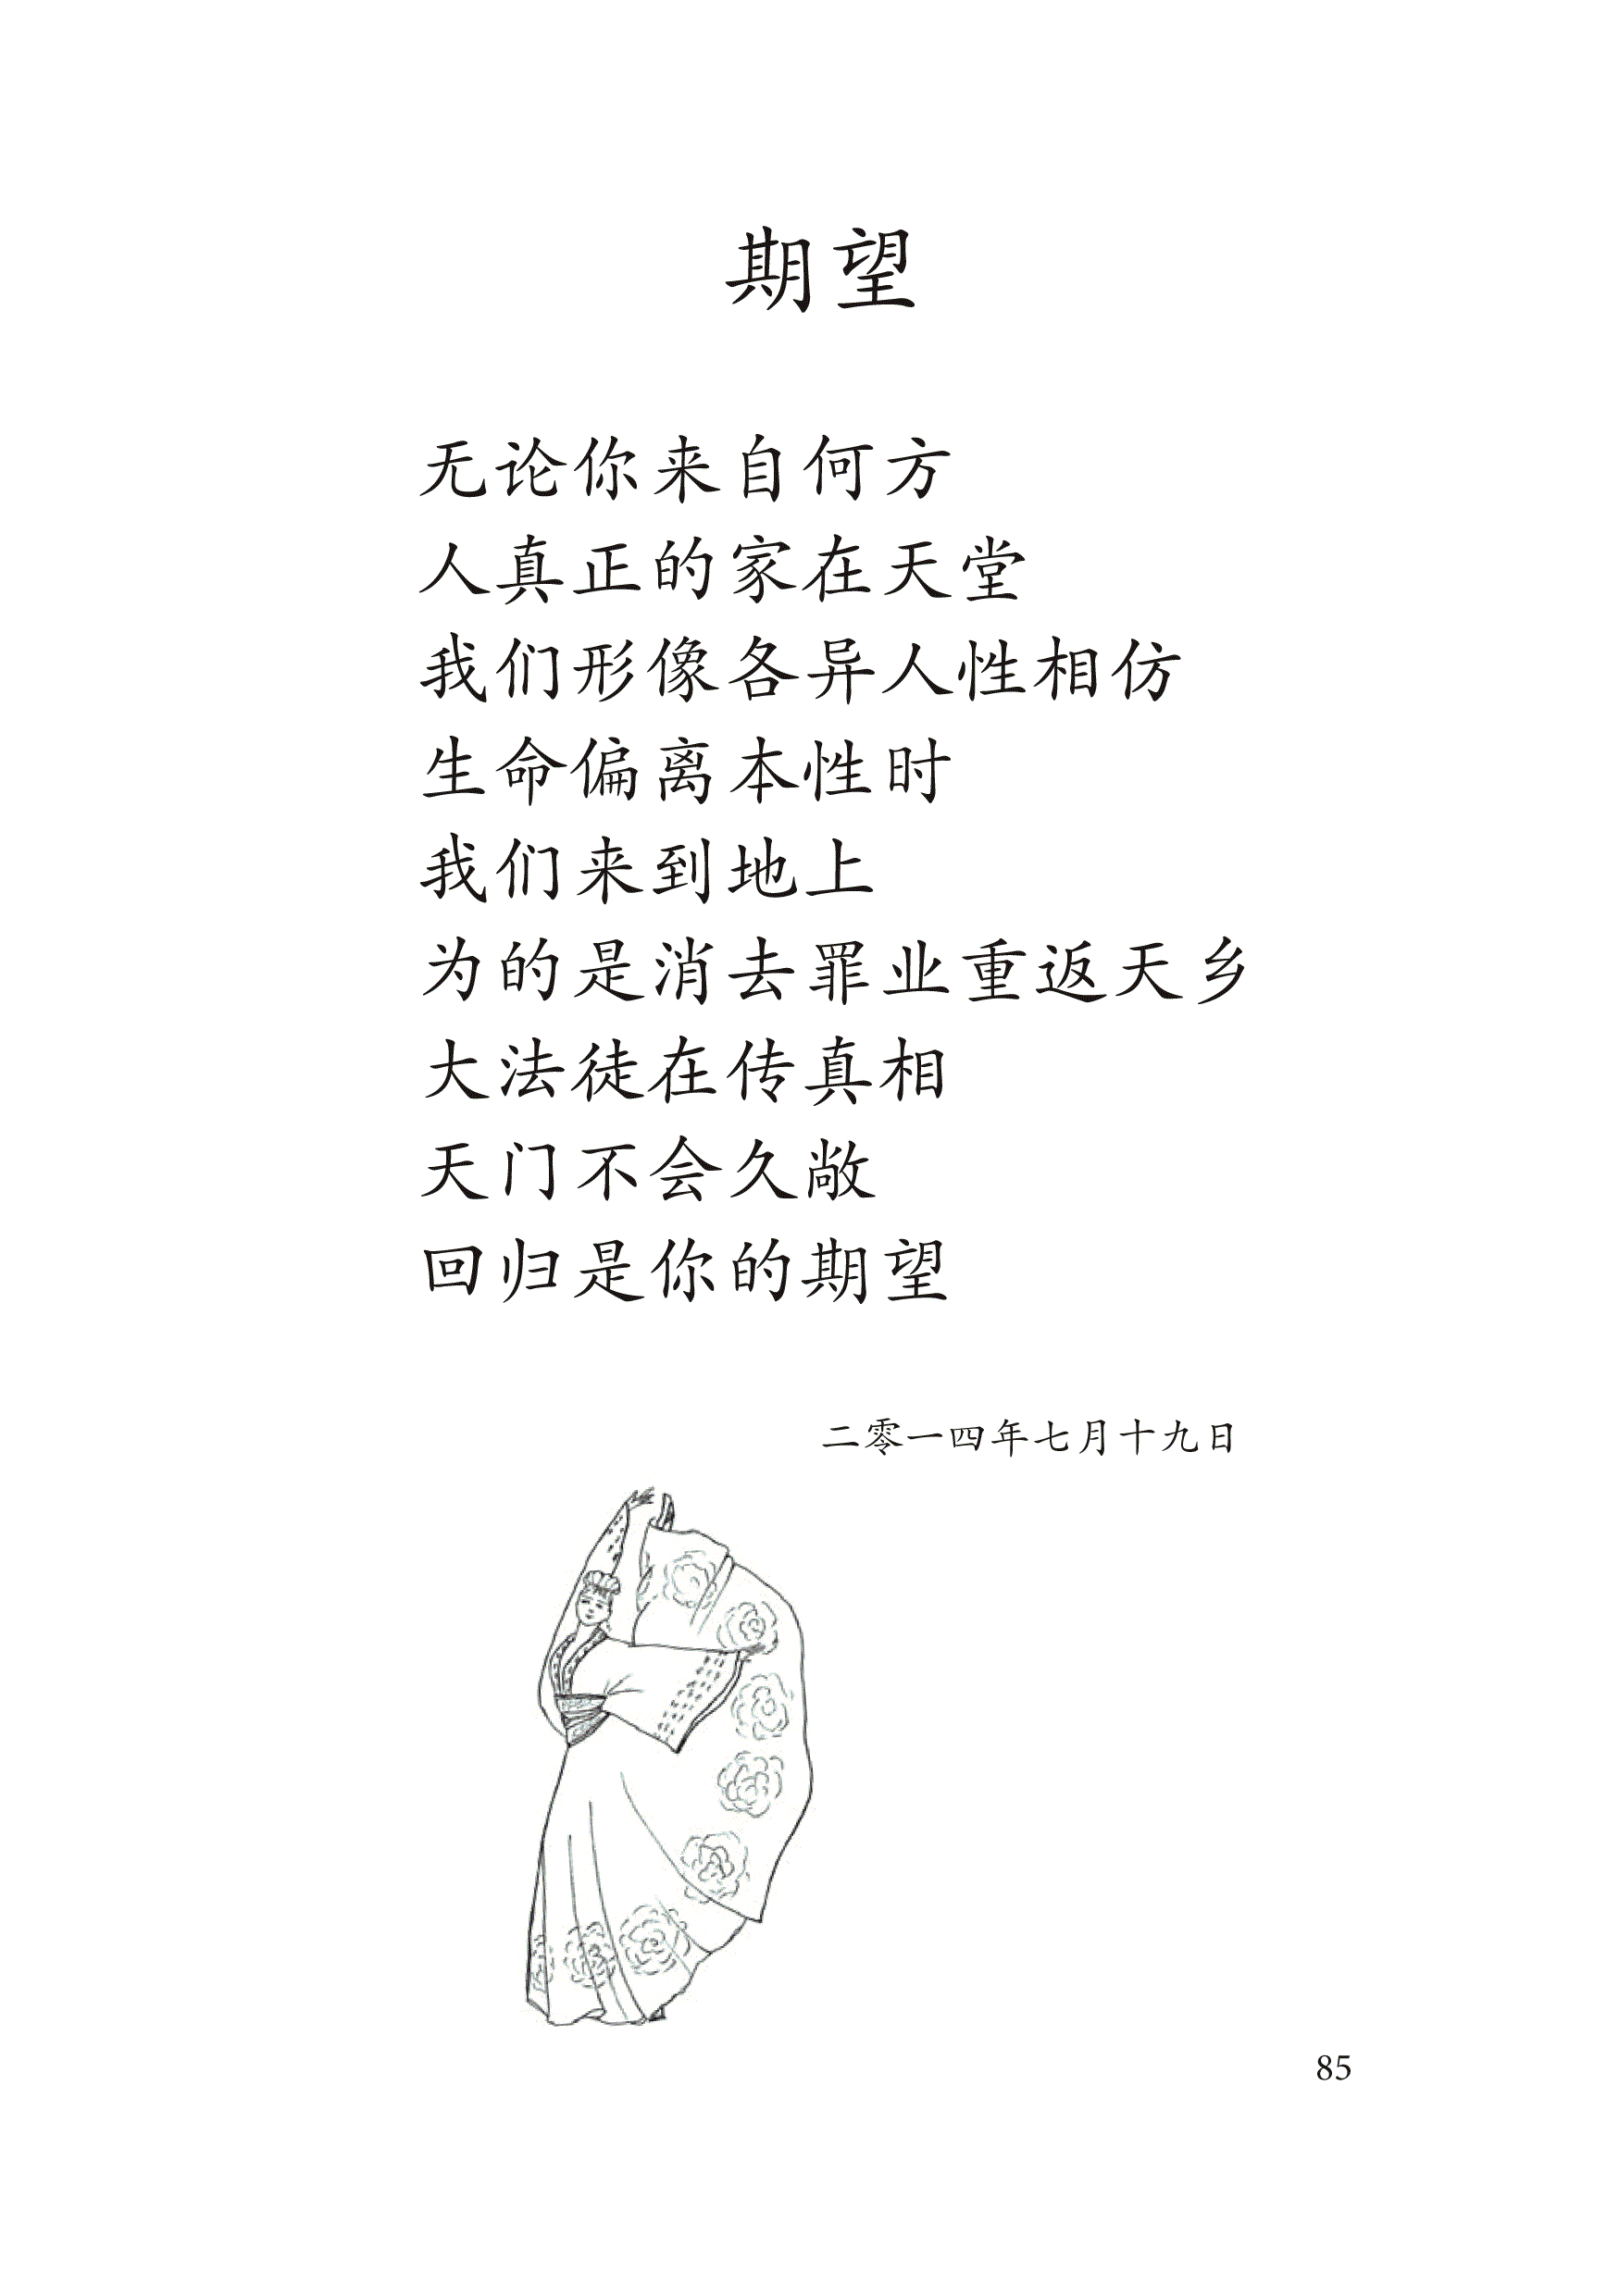 期望
无论你来自何方
人真正的家在天堂
我们形像各异人性相仿
生命偏离本性时
我们来到地上
为的是消去罪业重返天乡
大法徒在传真相
天门不会久敞
回归是你的期望
二零一四年七月十九日
85